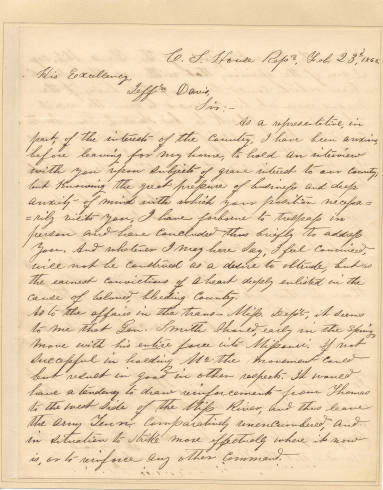 C. S. House Reps, Feb 23d, 1865
His Excellency
Jeffn Davis,
Sir:-
As a representative, in
part, of the interests of the country, I have been anxious
before leaving for my home, to hold an interview
with you upon subjects of grave interest to our country
but knowing the great pressure of business and deep
anxiety of mind with which your position neces=
=rily visits you, I have forborne to trespass in
person and have concluded thus briefly to address
you. And whatever I may here say, I feel convinced,
will not be construed as a desire to obtrude, but as
the earnest convictions of a heart deeply enlisted in the
cause of beloved, bleeding country.
As to the affairs in the trans-Miss. Dept.- it seems
to me that Gen. Smith should early in the Spring
move with his entire force into Missouri. If not
successful in holding Mo. the movement could
but result in good in other respects. It would
have a tendency to draw reinforcements from Thomas
to the west side of the Miss River, and thus leave
the army Tenn. comparatively unencumbered, and
in situation to strike more effectively where it now
is, or to reinforce any other command.